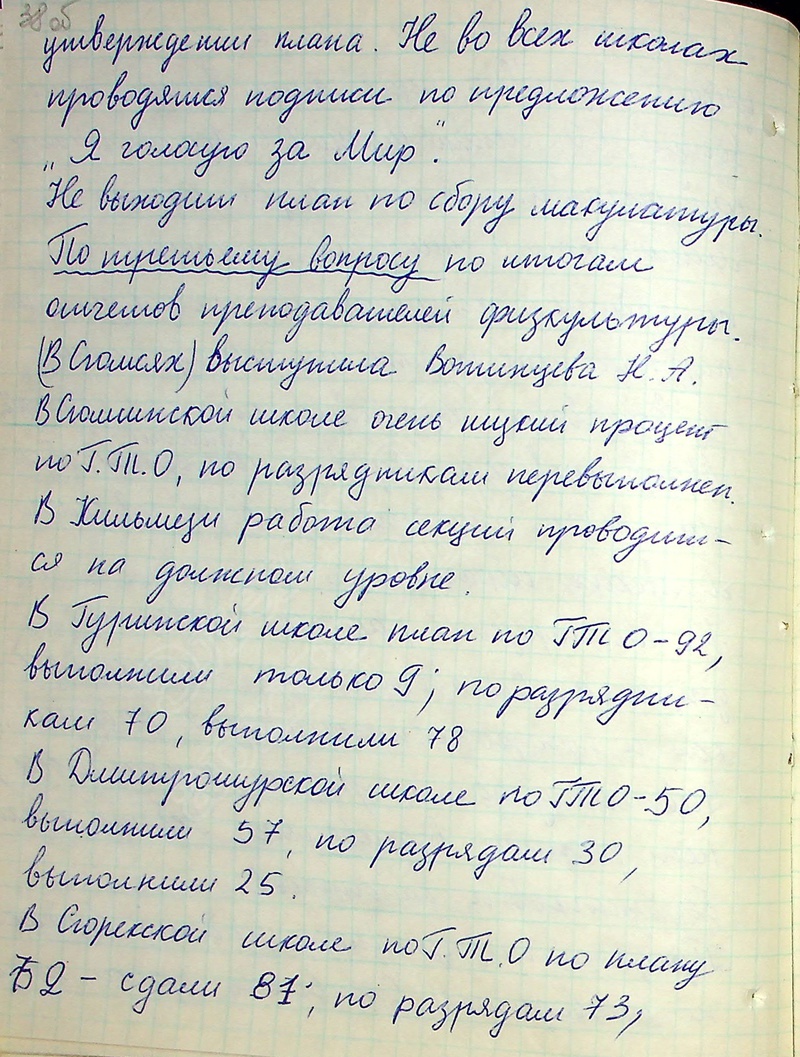 38 об
утверждении плана. Не во всех школах
проводятся подписи по предложению
„Я голосую за Мир".
Не выходит план по сбору макулатуры.
По третьему вопросу по итогам
отчетов преподавателей физкультуры.
(В Сюмсях) выступила Вотинцева Н.А.
В Сюмсинской школе очень низкий процент
по Г.Т.О, по разрядникам перевыполнен.
В Кильмези работа секций проводит-
ся на должном уровне.
В Гуринской школе план по ГТО-92,
выполнили только 9; по разрядни-
кам 70, выполнили 78
В Дмитрошурской школе по ГТО-50,
выполнили 57, по разрядам 30,
выполнили 25.
В Сюрекской школе по Г.Т.О по плану
52 - сдали 81; по разрядам 73,